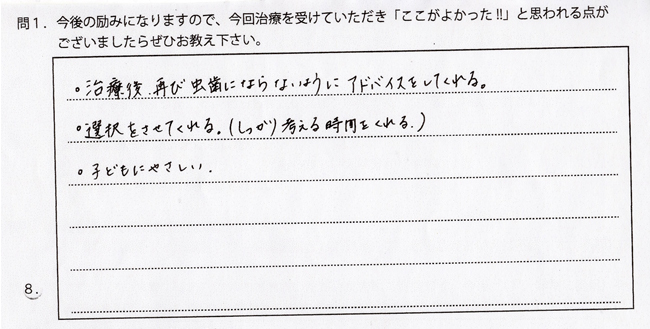 問1．今後の励みになりますので、今回治療を受けていただき「ここがよかった!!」と思われる点が
ございましたらぜひお教え下さい。
。治療後、再び虫歯にならないようにアドバイスをしてくれる。
。選択をさせてくれる。(しっかり考える時間をくれる。)
。子どもにやさしい．
8.